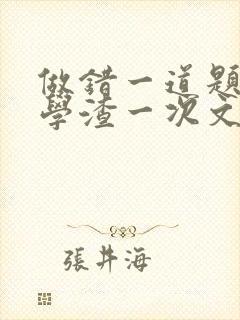 做錯一道題
學渣一次文
張井海